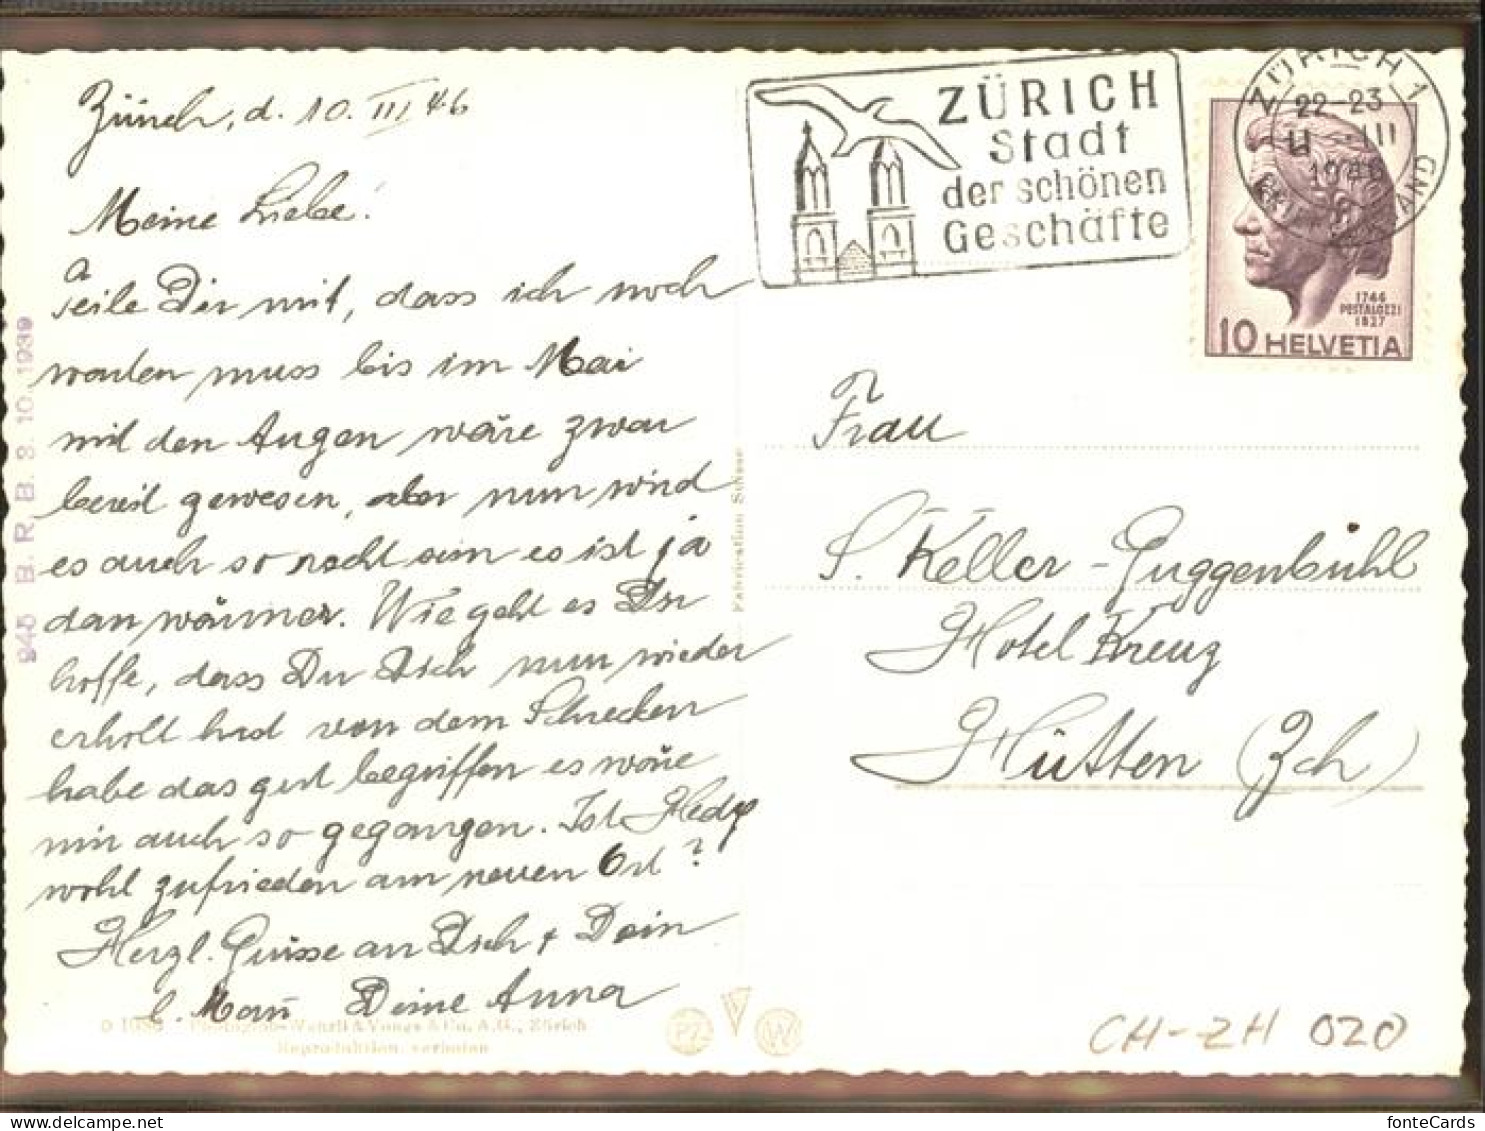 Zürich, d. 10. III 46
Meine Liebe!
Teile Dir mit, dass ich noch
warten muss bis im Mai
mit den Augen wäre zwar
bereit gewesen, aber nun wird
es auch so recht sein es ist ja
dan wärmer. Wie geht es Dir
hoffe, dass Du Dich nun wieder
erholt hast von dem Schrecken
habe das gut begriffen es wäre
mir auch so gegangen. Ist Hedy
wohl zufrieden am neuen Ort?
Herzl. Grüsse an Dich + Dein
l. Mañ Deine Anna
945 B. R. B. 3. 10. 1939
Fabrication Suisse
Photoglob-Wehrli & Vouga & Co. A.G., Zürich
Reproduktion verboten
PZ W
ZÜRICH
Stadt
der schönen
Geschäfte
ZÜRICH 1
22-23
11.-III
1946
1746
PESTALOZZI
1827
10 HELVETIA
Frau
S. Keller-Guggenbühl
Hotel Kreuz
Hütten (Zch)
CH-ZH 020
fonteCards